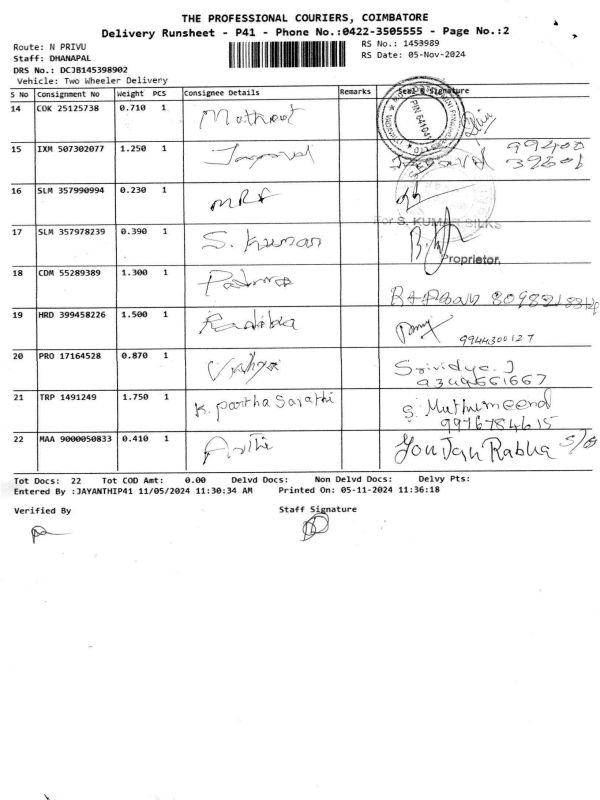 THE PROFESSIONAL COURIERS, COIMBATORE
Delivery Runsheet - P41 - Phone No.:0422-3505555 - Page No.:2
Route: N PRIVU
RS No.: 1453989
Staff: DHANAPAL
RS Date: 05-Nov-2024
DRS No.: DCJB145398902
Vehicle: Two Wheeler Delivery
S No Consignment No Weight PCS Consignee Details Remarks Seal & Signature
14 COK 25125738 0.710 1
PIN 641041
15 IXM 507302077 1.250 1 Jayaval Jayaval 99400
39606
16 SLM 357990994 0.230 1 MRF
For S. KUMAR SILKS
17 SLM 357978239 0.390 1 S. Kumar
Proprietor.
18 CDM 55289389 1.300 1 Padma
19 HRD 399458226 1.500 1 Radika
9944300127
20 PRO 17164528 0.870 1 Vidya Srividya. J
9349661667
21 TRP 1491249 1.750 1 K. Partha Sarathi S. Muthumeena
9976784615
22 MAA 9000050833 0.410 1 Arthi Gou Jan Rabha S/o
Tot Docs: 22 Tot COD Amt: 0.00 Delvd Docs: Non Delvd Docs: Delvy Pts:
Entered By :JAYANTHIP41 11/05/2024 11:30:34 AM Printed On: 05-11-2024 11:36:18
Verified By Staff Signature